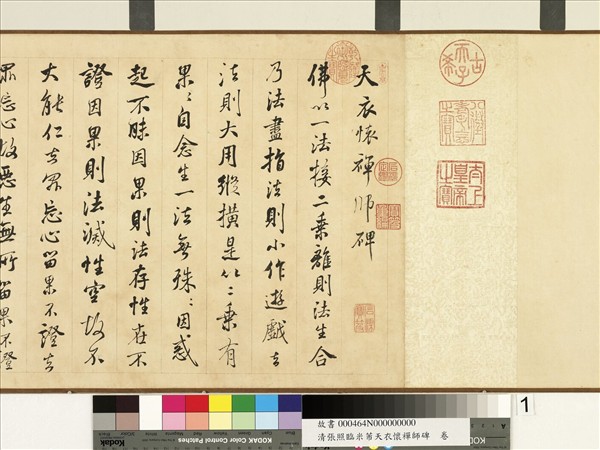 天衣懷禪師碑
佛以一法接二乗離則法生合
乃法盡指法則小作遊戲去
法則大用縱橫是以二乗有
果〻自念生一法無殊〻因惑
起不昧因果則法存性在不
證因果則法滅性空故不
大能仁去眾忘心留果不證去
眾忘心故惡生無所留果不證
古希天子
八徵耄念之寶
太上皇帝之寶
KODAK Color Control Patches
Kodak
故書 000464N000000000
清張照臨米芾天衣懷禪師碑 卷
1